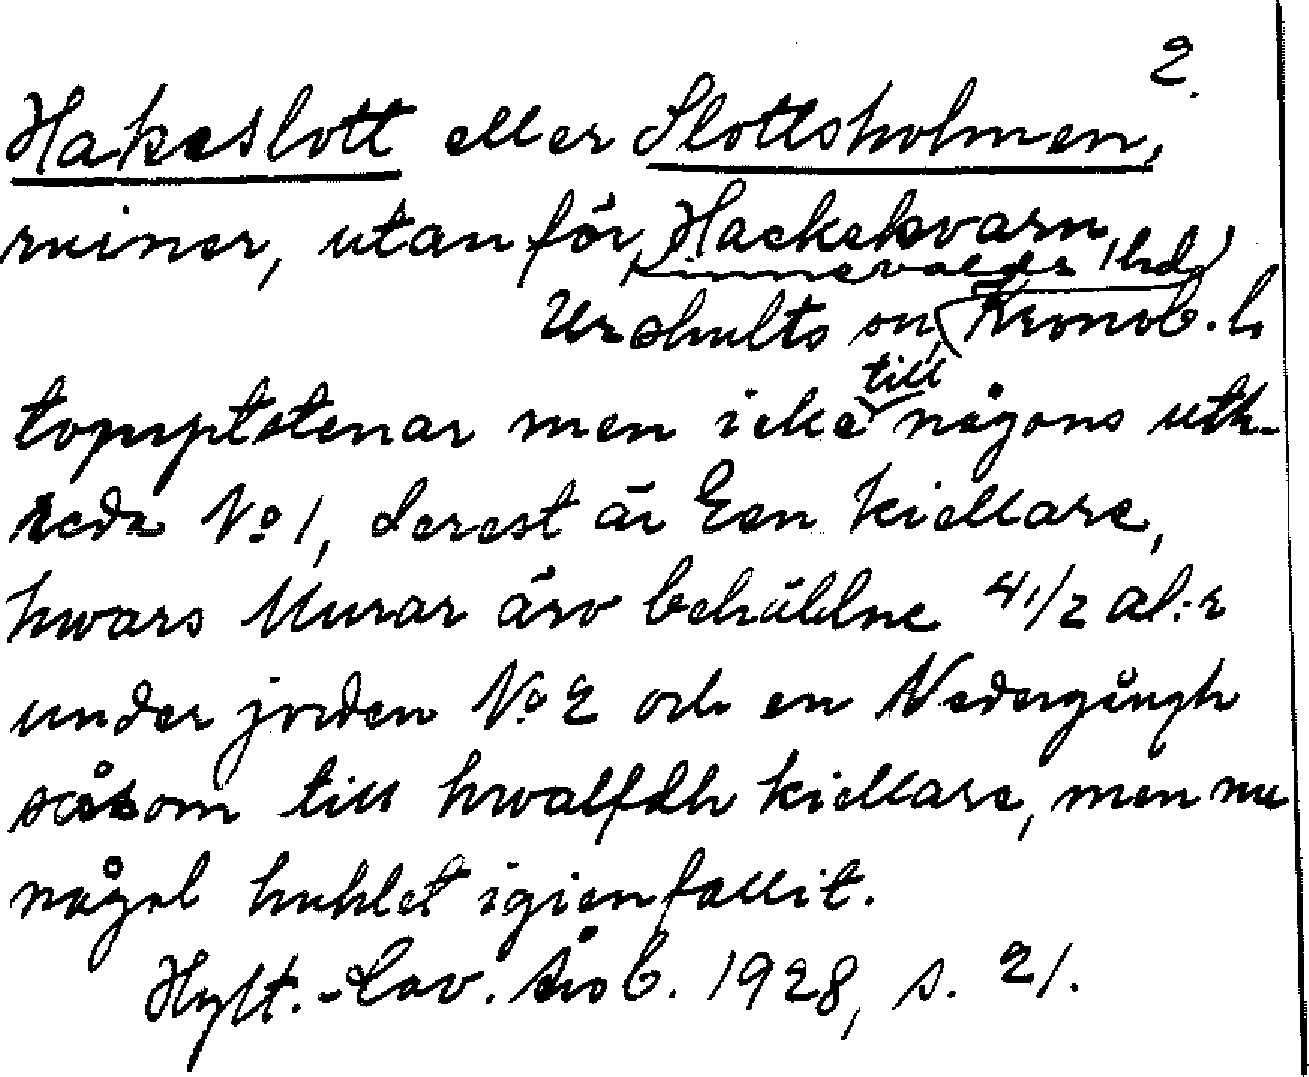 2.
Hakeslott eller Slottsholmen,
ruiner, utanför Hackekvarn,
Kinnevalds hd
Urshults sn, Kronob. l.
till
topptstenar men icke någons uth-
reda No 1, derest är Een kiellare,
hwars Murar äro behåldne 4 1/2 al:r
under jorden No 2 och en Nedergångh
såsom till hwalfdh kiellare, men nu
någol huhlet igienfallit.
Hylt.-Cav. Årsb. 1928, s. 21.